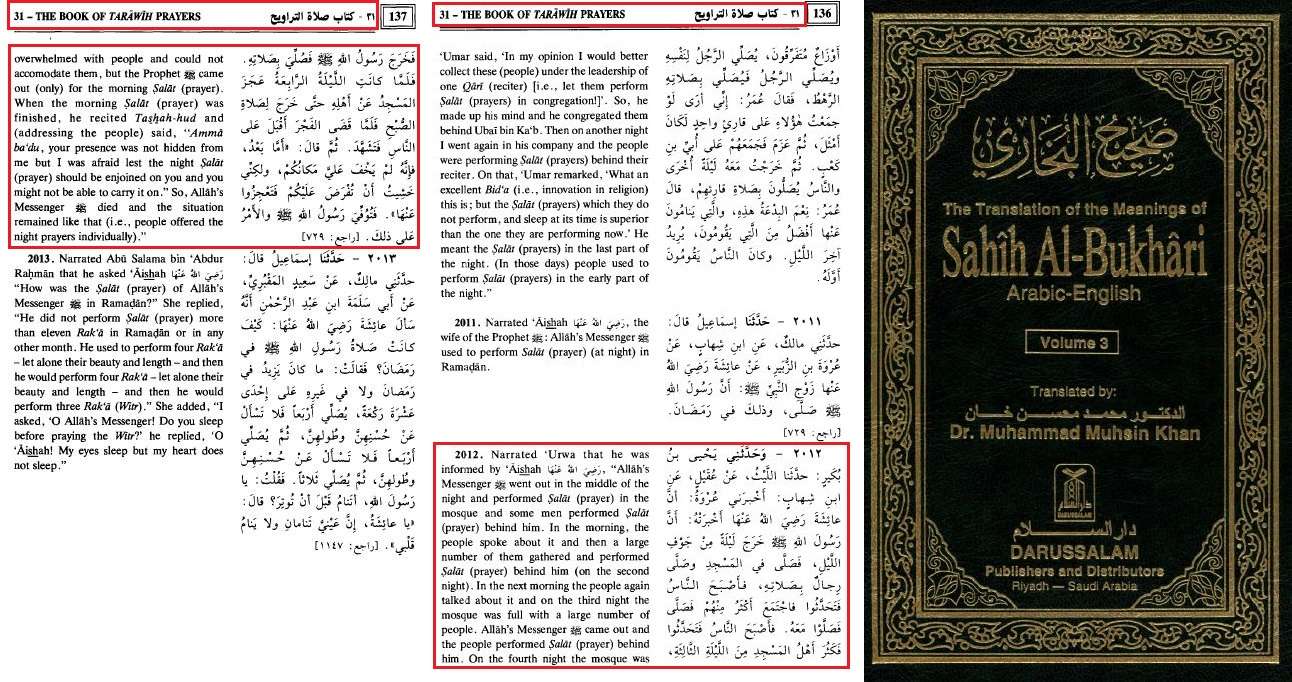 31 – THE BOOK OF TARĀWĪH PRAYERS
٣١ - كتاب صلاة التراويح
137
overwhelmed with people and could not
accomodate them, but the Prophet ﷺ came
out (only) for the morning Ṣalāt (prayer).
When the morning Ṣalāt (prayer) was
finished, he recited Tashah-hud and
(addressing the people) said, “Ammā
ba'du, your presence was not hidden from
me but I was afraid lest the night Ṣalāt
(prayer) should be enjoined on you and you
might not be able to carry it on.” So, Allāh's
Messenger ﷺ died and the situation
remained like that (i.e., people offered the
night prayers individually).”
2013. Narrated Abū Salama bin 'Abdur
Raḥmān that he asked 'Āishah رَضِيَ اللهُ عَنْهَا
“How was the Ṣalāt (prayer) of Allāh's
Messenger ﷺ in Ramaḍān?” She replied,
“He did not perform Ṣalāt (prayer) more
than eleven Rak'ā in Ramaḍān or in any
other month. He used to perform four Rak'ā
– let alone their beauty and length – and then
he would perform four Rak'ā – let alone their
beauty and length – and then he would
perform three Rak'ā (Witr).” She added, “I
asked, 'O Allāh's Messenger! Do you sleep
before praying the Witr?' he replied, 'O
'Āishah! My eyes sleep but my heart does
not sleep.”
فَخَرَجَ رَسُولُ اللهِ ﷺ فَصُلِّيَ بِصَلَاتِهِ.
فَلَمَّا كَانَتِ اللَّيْلَةُ الرَّابِعَةُ عَجَزَ
المَسْجِدُ عَنْ أَهْلِهِ حَتَّى خَرَجَ لِصَلَاةِ
الصُّبْحِ فَلَمَّا قَضَى الفَجْرَ أَقْبَلَ عَلَى
النَّاسِ فَتَشَهَّدَ. ثُمَّ قالَ: «أَمَّا بَعْدُ،
فَإِنَّهُ لَمْ يَخْفَ عَلَيَّ مَكَانُكُمْ، ولكِنِّي
خَشِيتُ أَنْ تُفْرَضَ عَلَيْكُمْ فَتَعْجِزُوا
عَنْهَا». فَتُوُفِّيَ رَسُولُ اللهِ ﷺ والأَمْرُ
عَلى ذلكَ. [راجع: ٧٢٩]
٢٠١٣ - حَدَّثَنَا إِسْماعِيلُ قالَ:
حَدَّثَنِي مالِكٌ، عَنْ سَعِيدٍ المَقْبُرِيِّ،
عَنْ أَبي سَلَمَةَ ابنِ عَبْدِ الرَّحْمٰنِ أَنَّهُ
سَأَلَ عائِشَةَ رَضِيَ اللهُ عَنْهَا: كَيْفَ
كانَتْ صَلَاةُ رَسُولِ اللهِ ﷺ في
رَمَضَانَ؟ فَقالَتْ: ما كانَ يَزِيدُ في
رَمَضَانَ ولا في غَيرِهِ عَلى إِحْدَى
عَشْرَةَ رَكْعَةً، يُصَلِّي أَرْبَعًا فَلَا تَسْأَلْ
عَنْ حُسْنِهِنَّ وطُولِهِنَّ، ثُمَّ يُصَلِّي
أَرْبَعاً فَلا تَسْأَلْ عَنْ حُسْنِهِنَّ
وطُولِهِنَّ، ثُمَّ يُصَلِّي ثَلاثاً. فَقُلْتُ: يا
رَسُولَ اللهِ، أَتَنامُ قَبْلَ أَنْ تُوتِرَ؟ قالَ:
«يا عائِشَةُ، إِنَّ عَيْنَيَّ تَنامانِ ولا يَنَامُ
قَلْبي». [راجع: ١١٤٧]
31 – THE BOOK OF TARĀWĪH PRAYERS
٣١ - كتاب صلاة التراويح
136
'Umar said, 'In my opinion I would better
collect these (people) under the leadership of
one Qārī (reciter) [i.e., let them perform
Ṣalāt (prayers) in congregation!]'. So, he
made up his mind and he congregated them
behind Ubaī bin Ka'b. Then on another night
I went again in his company and the people
were performing Ṣalāt (prayers) behind their
reciter. On that, 'Umar remarked, 'What an
excellent Bid'a (i.e., innovation in religion)
this is; but the Ṣalāt (prayers) which they do
not perform, and sleep at its time is superior
than the one they are performing now.' He
meant the Ṣalāt (prayers) in the last part of
the night. (In those days) people used to
perform Ṣalāt (prayers) in the early part of
the night.”
2011. Narrated 'Āishah رَضِيَ اللهُ عَنْهَا, the
wife of the Prophet ﷺ: Allāh's Messenger ﷺ
used to perform Ṣalāt (prayer) (at night) in
Ramaḍān.
2012. Narrated 'Urwa that he was
informed by 'Āishah رَضِيَ اللهُ عَنْهَا, “Allāh's
Messenger ﷺ went out in the middle of the
night and performed Ṣalāt (prayer) in the
mosque and some men performed Ṣalāt
(prayer) behind him. In the morning, the
people spoke about it and then a large
number of them gathered and performed
Ṣalāt (prayer) behind him (on the second
night). In the next morning the people again
talked about it and on the third night the
mosque was full with a large number of
people. Allāh's Messenger ﷺ came out and
the people performed Ṣalāt (prayer) behind
him. On the fourth night the mosque was
أَوْزَاعٌ مُتَفَرِّقُونَ، يُصَلِّي الرَّجُلُ لِنَفْسِهِ
ويُصَلِّي الرَّجُلُ فَيُصَلِّي بِصَلاتِهِ
الرَّهْطُ، فَقالَ عُمَرُ: إِنِّي أَرَى لَوْ
جَمَعْتُ هٰؤُلَاءِ عَلى قارِئٍ واحِدٍ لَكَانَ
أَمْثَلَ، ثُمَّ عَزَمَ فَجَمَعَهُمْ عَلى أُبَيِّ بنِ
كَعْبٍ. ثُمَّ خَرَجْتُ مَعَهُ لَيْلَةً أُخْرَى
والنَّاسُ يُصَلُّونَ بِصَلَاةِ قارِئِهِمْ، قالَ
عُمَرُ: نِعْمَ البِدْعَةُ هذِهِ، والَّتِي يَنَامُونَ
عَنْها أَفْضَلُ مِنَ الَّتِي يَقُومُونَ، يُرِيدُ
آخِرَ اللَّيْلِ. وكانَ النَّاسُ يَقُومُونَ
أَوَّلَهُ.
٢٠١١ - حَدَّثَنَا إِسْماعِيلُ قالَ:
حَدَّثَنِي مالِكٌ، عَنِ ابنِ شِهابٍ، عَنْ
عُرْوَةَ بنِ الزُّبَيرِ، عَنْ عائِشَةَ رَضِيَ اللهُ
عَنْها زَوْجِ النَّبِيِّ ﷺ: أَنَّ رَسُولَ اللهِ
ﷺ صَلَّى، وذلكَ في رَمَضَانَ.
[راجع: ٧٢٩]
٢٠١٢ - وَحَدَّثَنِي يَحْيَى بنُ
بُكَيرٍ: حدَّثَنا اللَّيْثُ، عَنْ عُقَيْلٍ، عَنِ
ابنِ شِهابٍ: أَخْبرَني عُرْوَةُ: أنَّ
عائِشَةَ رَضِيَ اللهُ عَنْهَا أَخْبَرَتْهُ: أَنَّ
رَسُولَ اللهِ ﷺ خَرَجَ لَيْلَةً مِنْ جَوْفِ
اللَّيْلِ، فَصَلَّى في المَسْجِدِ وَصَلَّى
رِجالٌ بِصَلاتِهِ، فَأَصْبَحَ النَّاسُ
فَتَحَدَّثُوا فاجْتَمَعَ أَكْثَرُ مِنْهُمْ فَصَلَّى
فَصَلَّوْا مَعَهُ. فَأَصْبَحَ النَّاسُ فَتَحَدَّثُوا
فَكَثُرَ أَهْلُ المَسْجِدِ مِنَ اللَّيْلَةِ الثَّالِثَةِ،
صحيح البخاري
The Translation of the Meanings of
Sahîh Al-Bukhâri
Arabic-English
Volume 3
Translated by:
الدكتور محمد محسن خان
Dr. Muhammad Muhsin Khan
دار السلام
DARUSSALAM
دار السلام
DARUSSALAM
Publishers and Distributors
Riyadh — Saudi Arabia